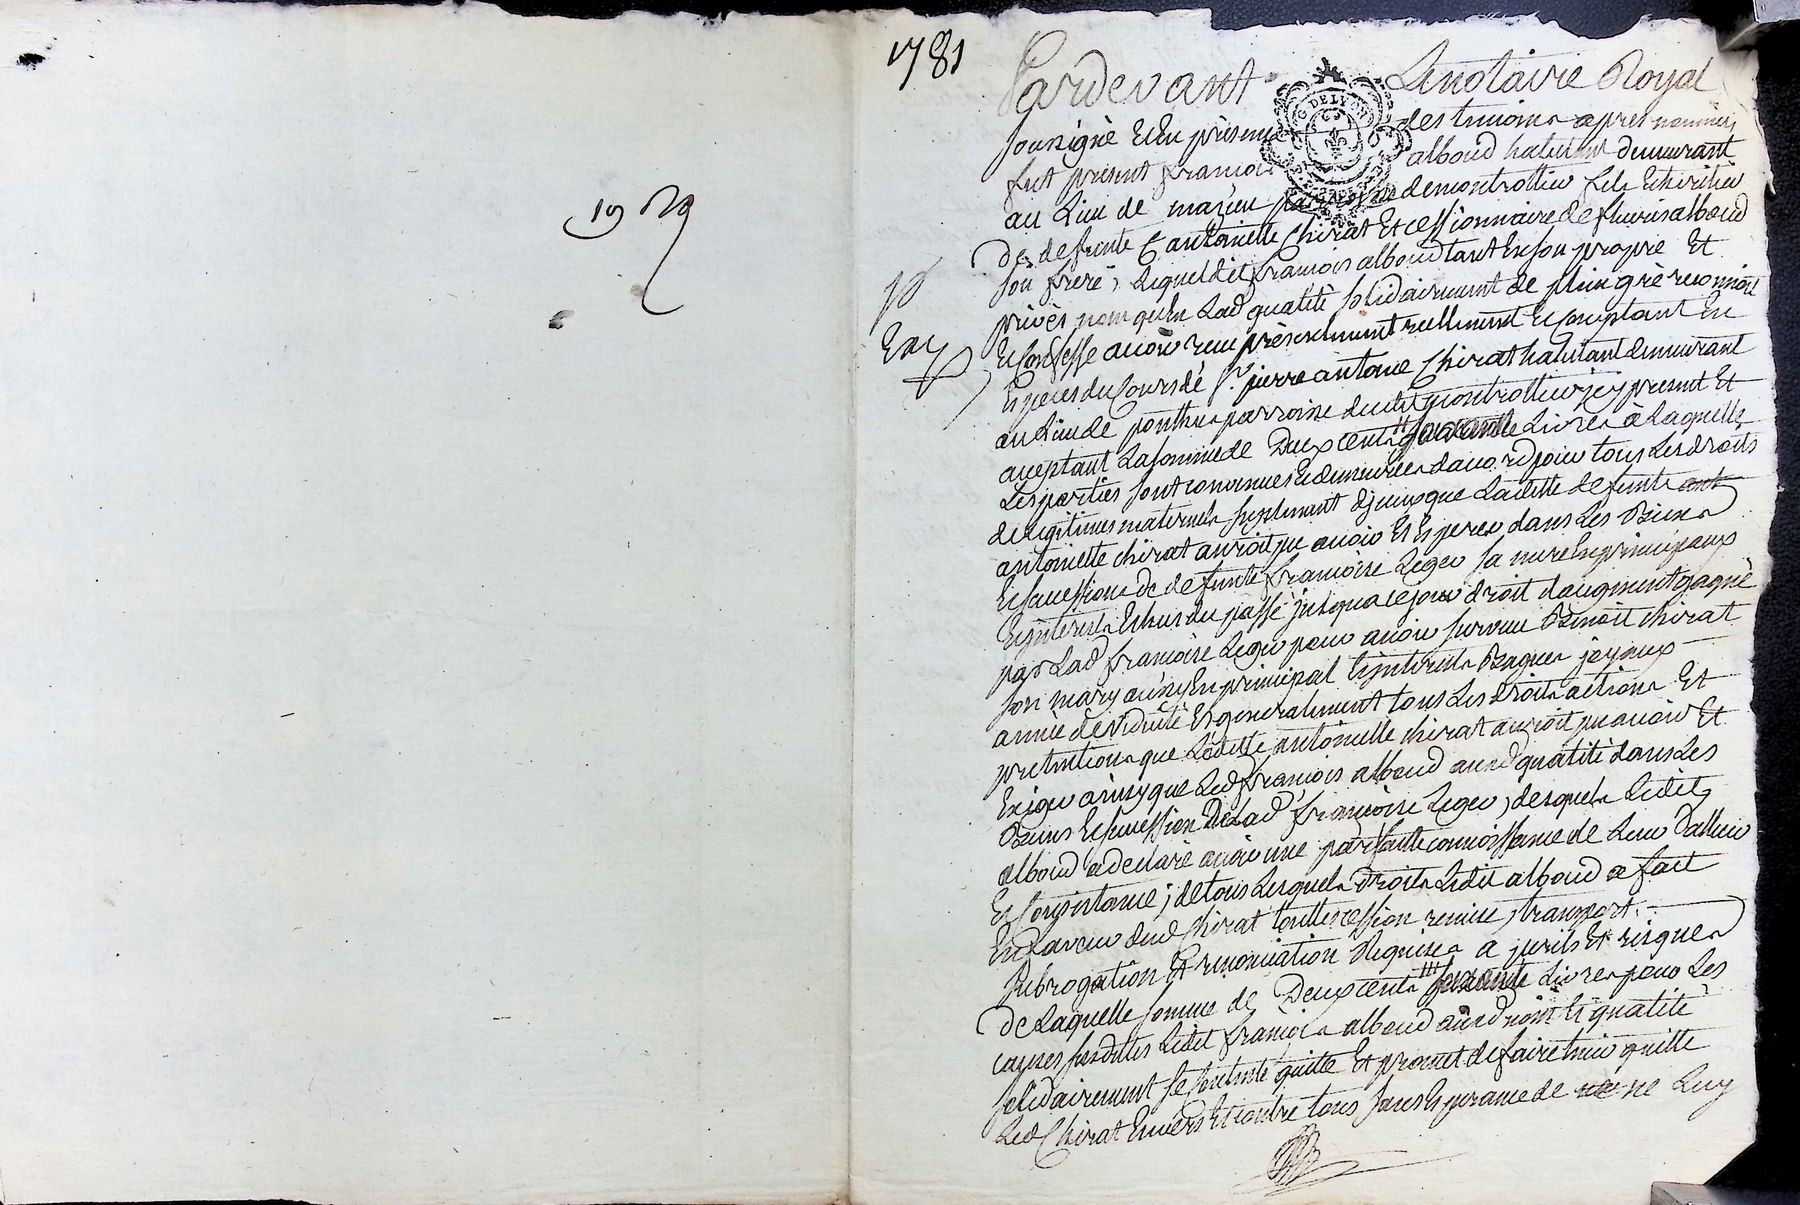 1781
Pardevant Le notaire Royal
soussigné Et En présence des temoins apres nommés
fut present françois alboud habitant demeurant
au Lieu de mazieu paroisse de montrottier fils Et heritier
De deffunte antoinette Chirat Et cessionnaire de fleuris alboud
son frere, Lequel dit françois alboud tant En son propre Et
privés nom qu'En Lad qualité solidairement de plein gré reconnoit
Et Confesse avoir reçu présentement reellement Et comptant En
Especes du Cours de Sr. pierre antoine Chirat habitant demeurant
au Lieu de parroisse dudit montrottier jcy present Et
aceptant La somme de Deux cents Livres à Laquelle
Les parties sont convenues Et demeurées d'acord pour tous Les droits
de Legitimes maternels suplement quoique Ladette defunte
antoinette chirat auroit pu avoir Et Esperer dans Les Biens
Et succession de defunte françoise Leger sa mere En principaux
Et jnterests Echus du passé jusqua ce jour droit d'augment gagné
par Lad françoise Leger pour avoir survecu Benoit chirat
son mary aussy En principal Et jnterests Bagues joyaux
année de viduité Et generalement tous Les droits actions Et
pretentions que Ladette antoinette chirat auroit pu avoir Et
Exiger ainsy que Led françois alboud aud qualité dans Les
Biens Et succession De Lad françoise Leger, desquels Ledit
alboud a declaré avoir une parfaite connoissance de Leur Valleur
Et Consistance; de tous Lesquels Droits Ledit alboud a fait
En faveur dud Chirat toutte cession remise, transport
subrogation Et renonciation Requise a perils Et risques
De Laquelle somme de Deux cents soixante Livres pour Les
causes susdites Ledit françois alboud aud nom Et qualité
solidairement se contente quitte Et promet de faire tenir quitte
Led Chirat Envers Et contre tous sans Esperance de ne Luy